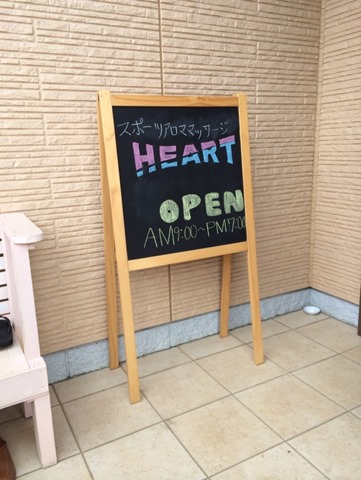 スポーツアロママッサージ
HEART
OPEN
AM9:00~PM7:00